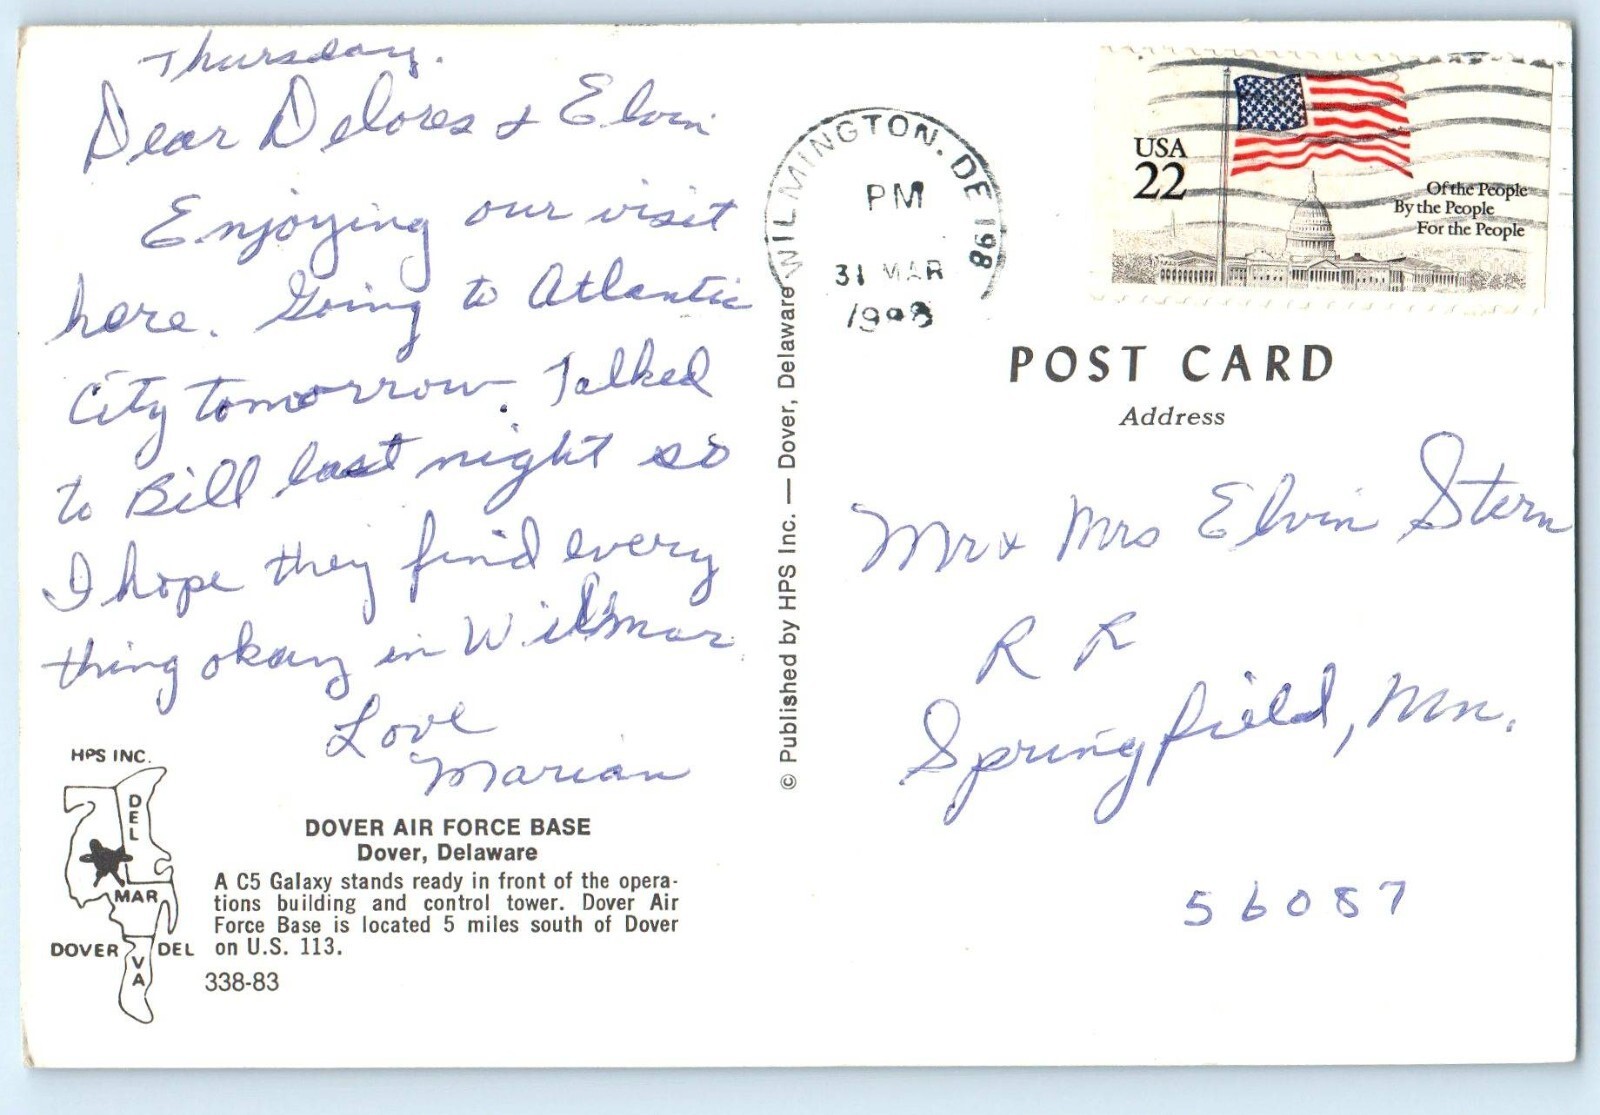 Thursday.
Dear Delores & Elvin
Enjoying our visit
here. Going to Atlantic
City tomorrow. Talked
to Bill last night so
I hope they find every
thing okay in Willmar
Love
Marian
HPS INC.
DEL
MAR
VA
DOVER DEL
DOVER AIR FORCE BASE
Dover, Delaware
A C5 Galaxy stands ready in front of the opera-
tions building and control tower. Dover Air
Force Base is located 5 miles south of Dover
on U.S. 113.
338-83
© Published by HPS Inc. — Dover, Delaware
WILMINGTON, DE 198
PM
31 MAR
USA
22
Of the People
By the People
For the People
POST CARD
Address
Mr & Mrs Elvin Stern
R R
Springfield, Mn.
56087